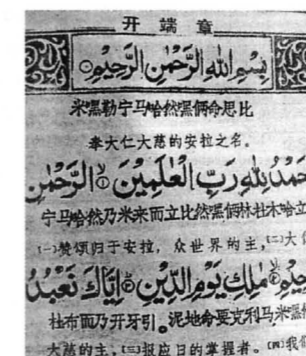 开端章
بِسْمِ اللهِ الرَّحْمٰنِ الرَّحِيْمِ
米黑勒宁马哈然黑俩命思比
奉大仁大慈的安拉之名。
حَمْدُ لِلهِ رَبِّ الْعٰلَمِيْنَ ۝١ الرَّحْمٰنِ
宁马哈然乃米来而立比然黑俩林杜木哈立
㈠赞颂归于安拉，众世界的主，㈡大仁
حِيْمِ ۝ مٰلِكِ يَوْمِ الدِّيْنِ ۝ اِيَّاكَ نَعْبُدُ
杜布而乃开牙引。泥地命要克利马米黑
大慈的主，㈢报应日的掌握者。㈣我们